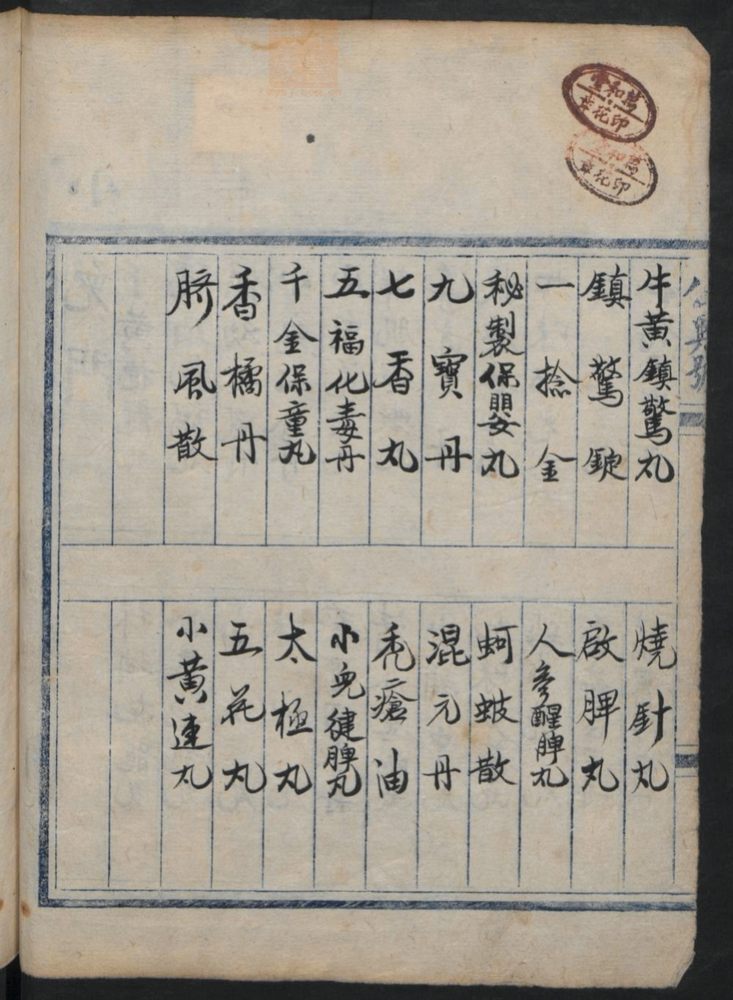 牛黄鎮驚丸
鎮驚錠
一捻金
秘製保嬰丸
九寶丹
七香丸
五福化毒丹
千金保童丸
香橘丹
臍風散
燒針丸
啟脾丸
人參醒脾丸
蚵蚾散
混元丹
禿瘡油
小兒健脾丸
太極丸
五花丸
小黃連丸